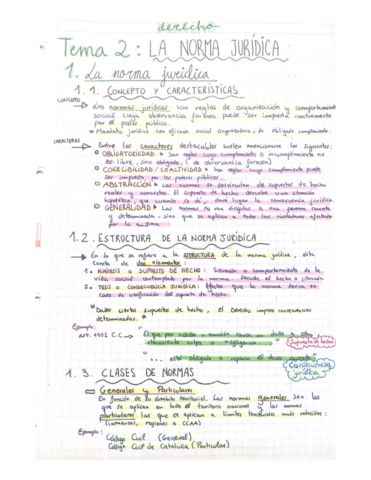 derecho
Tema 2: LA NORMA JURÍDICA
1. La norma jurídica
1. 1. CONCEPTO Y CARACTERÍSTICAS
CONCEPTO
Las normas jurídicas son reglas de organización y comportamiento
social cuya observancia forzosa puede ser impuesta coactivamente
por el poder público.
Mandato jurídico con eficacia social organizadora, de obligado cumplimiento.
CARACTERES
Entre los caracteres destacables suelen mencionarse los siguientes:
OBLIGATORIEDAD → Son reglas cuyo cumplimiento o incumplimiento no
es libre, sino obligado. (de observancia forzosa)
COERCIBILIDAD / COACTIVIDAD → Son reglas cuyo cumplimiento puede
ser impuesto, por los poderes públicos.
ABSTRACCIÓN → Las normas se desvinculan de supuestos de hecho
reales y concretos. El supuesto de hecho describe una situación
hipotética, que cuando se dé, dará lugar la consecuencia jurídica
GENERALIDAD → Las normas no van dirigidas a una persona concreta
y determinada, sino que se aplican a todos los ciudadanos afectados
por la misma
1. 2. ESTRUCTURA DE LA NORMA JURÍDICA
En lo que se refiere a la ESTRUCTURA de la norma jurídica, ésta
consta de dos elementos:
1. HIPÓTESIS o SUPUESTO DE HECHO: Situación o comportamiento de la
vida social contemplado por la norma. Derecho, hecho o
2. TESIS O CONSECUENCIA JURÍDICA: Efecto que la norma deriva en
caso de verificación del supuesto de hecho.
"Dados ciertos supuestos de hecho, el Derecho impone consecuencias
determinadas."
Ejemplo:
Art. 1902 C.C. → "El que por acción u omisión causa un daño a otro,
interviniendo culpa o negligencia"
Supuesto de hecho
"... está obligado a reparar el daño causado"
Consecuencia
jurídica
1. 3. CLASES DE NORMAS
Generales y Particulares
En función de su ámbito territorial. Las normas generales son las
que se aplican en todo el territorio nacional y las normas
particulares las que se aplican a límites territoriales más reducidos:
(comarcas, regiones o CCAA)
Ejemplo:
Código Civil (General)
Código Civil de Cataluña (Particular)